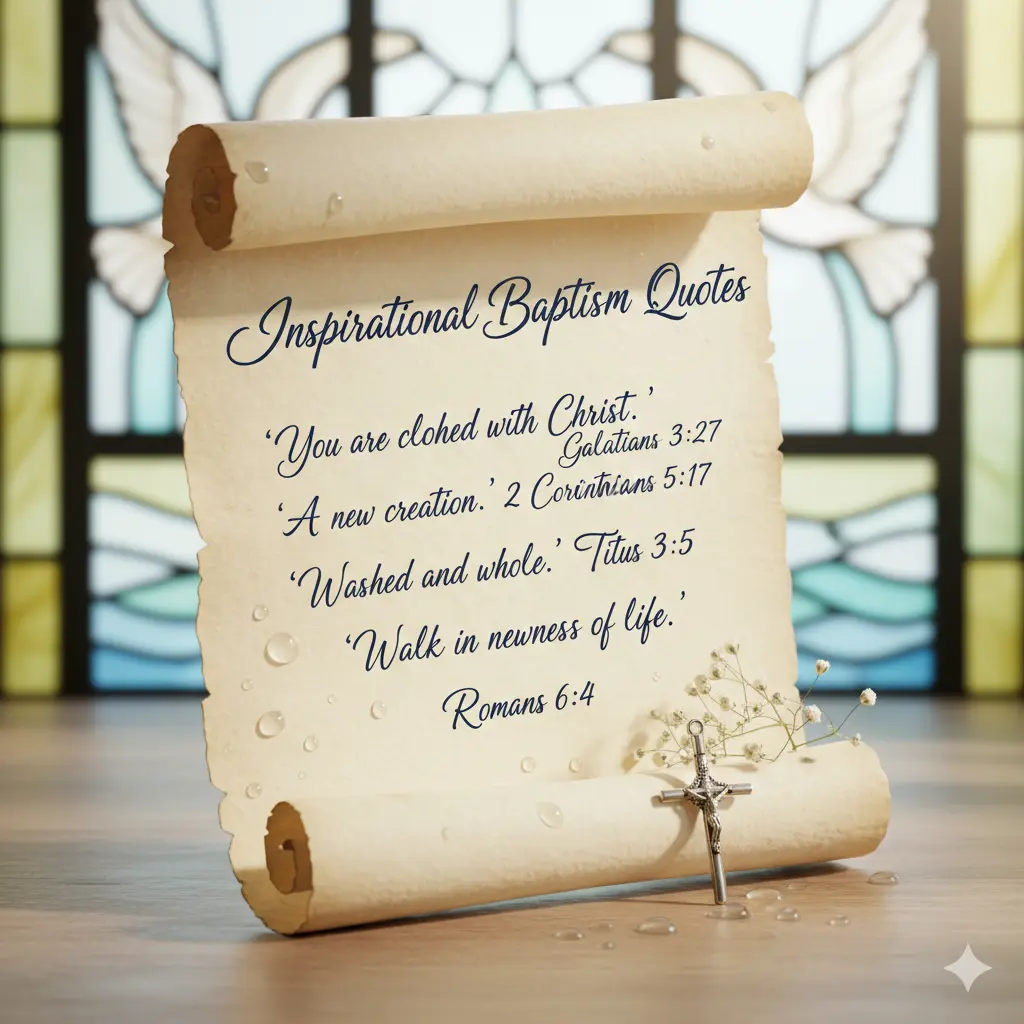 Inspirational Baptism Quotes
‘You are clohed with Christ.’
Galatians 3:27
‘A new creation.’ 2 Corinthians 5:17
‘Washed and whole.’ Titus 3:5
‘Walk in newness of life.’
Romans 6:4